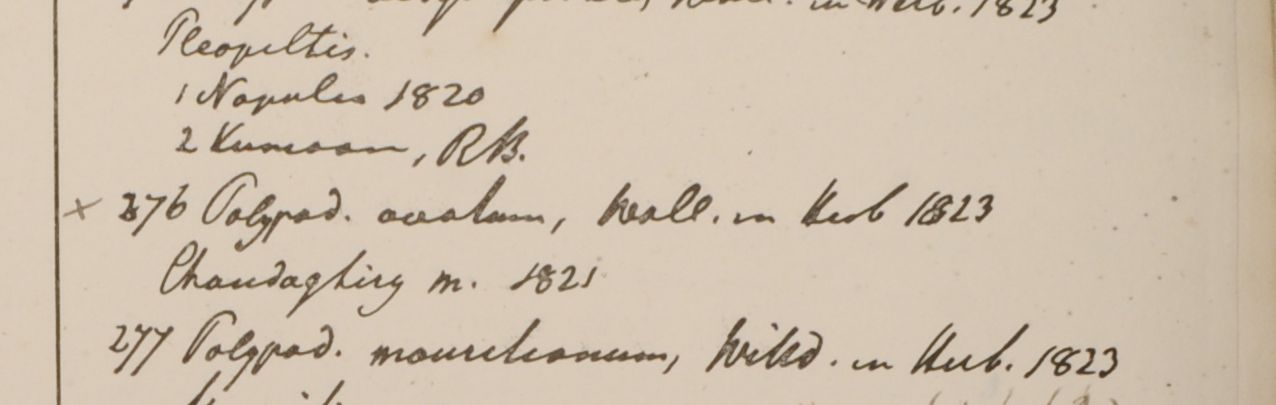 Wall. in Herb. 1823
Pleopeltis.
1 Napalia 1820
2 Kumaon, RB.
× 276 Polypod. ovatum, Wall. in Herb 1823
Chandaghiry m. 1821
277 Polypod. mauritianum, Willd. in Herb. 1823